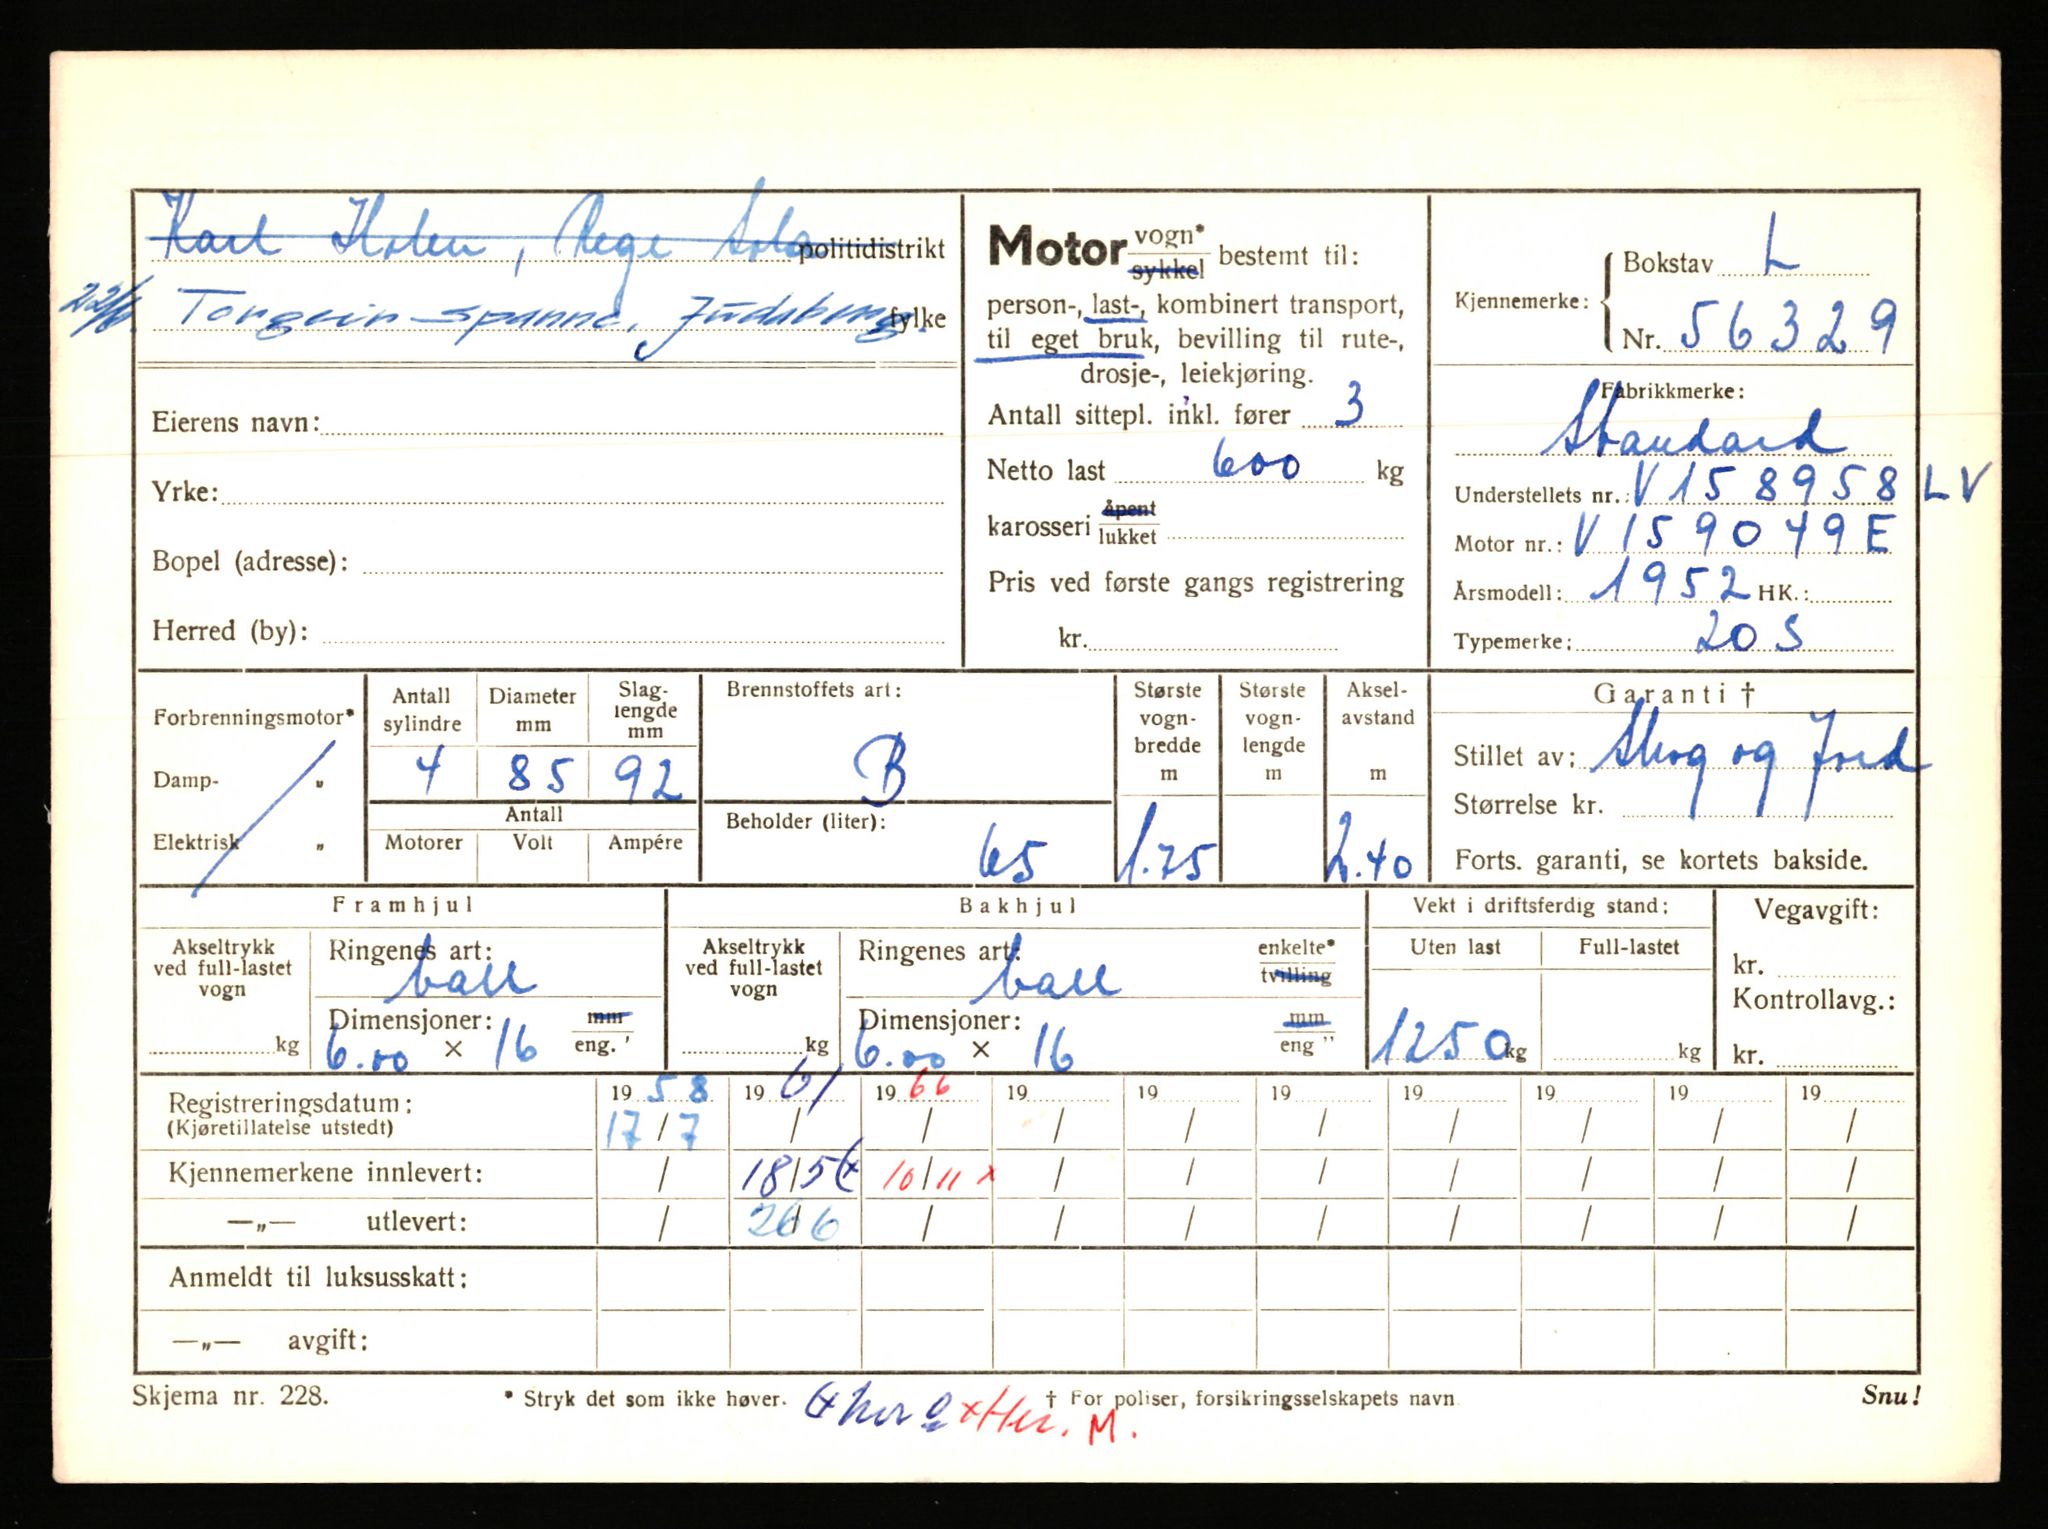 Karl Holen, Rege Sola politidistrikt
22/6. Torgeir Spanne, Judaberg. fylke
Eierens navn:
Yrke:
Bopel (adresse):
Herred (by):
Motor vogn* / sykkel bestemt til:
person-, last-, kombinert transport,
til eget bruk, bevilling til rute-,
drosje-, leiekjøring.
Antall sittepl. inkl. fører 3
Netto last 600 kg
karosseri åpent / lukket
Pris ved første gangs registrering
kr.
Kjennemerke: Bokstav L
Nr. 56329
Fabrikkmerke:
Standard
Understellets nr.: V158958LV
Motor nr.: V159049E
Årsmodell: 1952 HK.:
Typemerke: 20 S
Forbrenningsmotor*
Damp- „
Elektrisk „
Antall sylindre
4
Diameter mm
85
Slag- lengde mm
92
Antall
Motorer Volt Ampére
Brennstoffets art:
B
Beholder (liter):
65
Største vogn- bredde m
1.75
Største vogn- lengde m
Aksel- avstand m
2.40
Garanti †
Stillet av: Skog og Jord
Størrelse kr.
Forts. garanti, se kortets bakside.
Framhjul
Akseltrykk ved full-lastet vogn
kg
Ringenes art:
ball
Dimensjoner: mm / eng. '
6.00 × 16
Bakhjul
Akseltrykk ved full-lastet vogn
kg
Ringenes art: enkelte* / tvilling
ball
Dimensjoner: mm / eng "
6.00 × 16
Vekt i driftsferdig stand:
Uten last Full-lastet
1250 kg kg
Vegavgift:
kr.
Kontrollavg.:
kr.
19 58 19 61 19 66 19 19 19 19 19 19 19
Registreringsdatum: 17/7 / / / / / / / / /
(Kjøretillatelse utstedt)
Kjennemerkene innlevert: / 18/5 10/11 x / / / / / / /
—„— utlevert: / 26/6 / / / / / / / /
Anmeldt til luksusskatt:
—„— avgift:
Skjema nr. 228. * Stryk det som ikke høver. † For poliser, forsikringsselskapets navn Snu!
x Her. M.